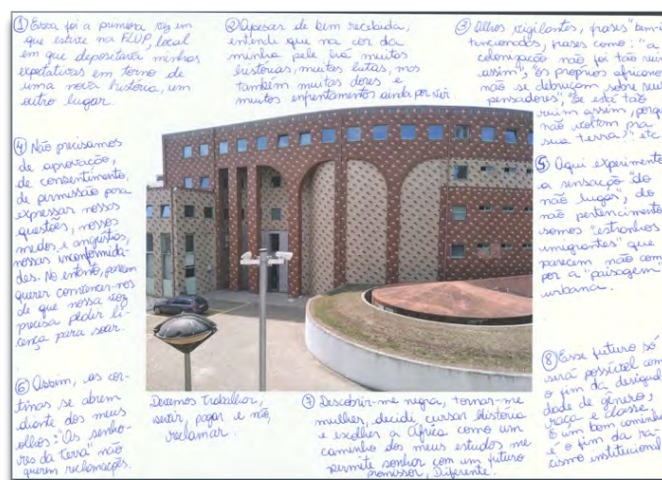 ① Essa foi a primeira vez em
que estive na FLUP, local
em que depositaria minhas
expetativas em torno de
uma nova história, um
outro lugar.
② Apesar de bem recebida,
entendi que na cor da
minha pele havia muitas
histórias, muitas lutas, mas
também muitas dores e
muitos enfrentamentos ainda por vir.
③ Olhos vigilantes, frases "bem-i
tencionadas, frases como: "a
colonização não foi tão ruim
assim", "os próprios africano
não se debruçam sobre seu
pensadores", "Se está tão
ruim assim, porqu
não voltam pra
sua terra?" etc
④ Não precisamos
de aprovação,
de consentimento,
de permissão para
expressar nossas
questões, nossos
medos, e angústias,
nossas inconformida-
des. No entanto, parecem
querer convencer-nos
de que nossa voz
precisa pedir li-
cença para soar.
⑤ Aqui experimento
a sensação "do
não lugar", do
não pertencimento
somos "estranhos
imigrantes" que
parecem não com
por a "paisagem"
urbana.
⑥ Assim, as cor-
tinas se abrem
diante dos meus
olhos: "Os senho-
res da terra" não
querem reclamações.
Devemos trabalhar,
servir, pagar e não,
reclamar.
⑦ Descobrir-me negra, tornar-me
mulher, decidi cursar História
e escolher a África como um
caminho dos meus estudos me
permite sonhar com um futuro
promissor, Diferente.
⑧ Esse futuro só
será possível com
o fim da desigual
dade de gênero,
raça e classe
o um bom caminho
é o fim da ra-
cismo institucional